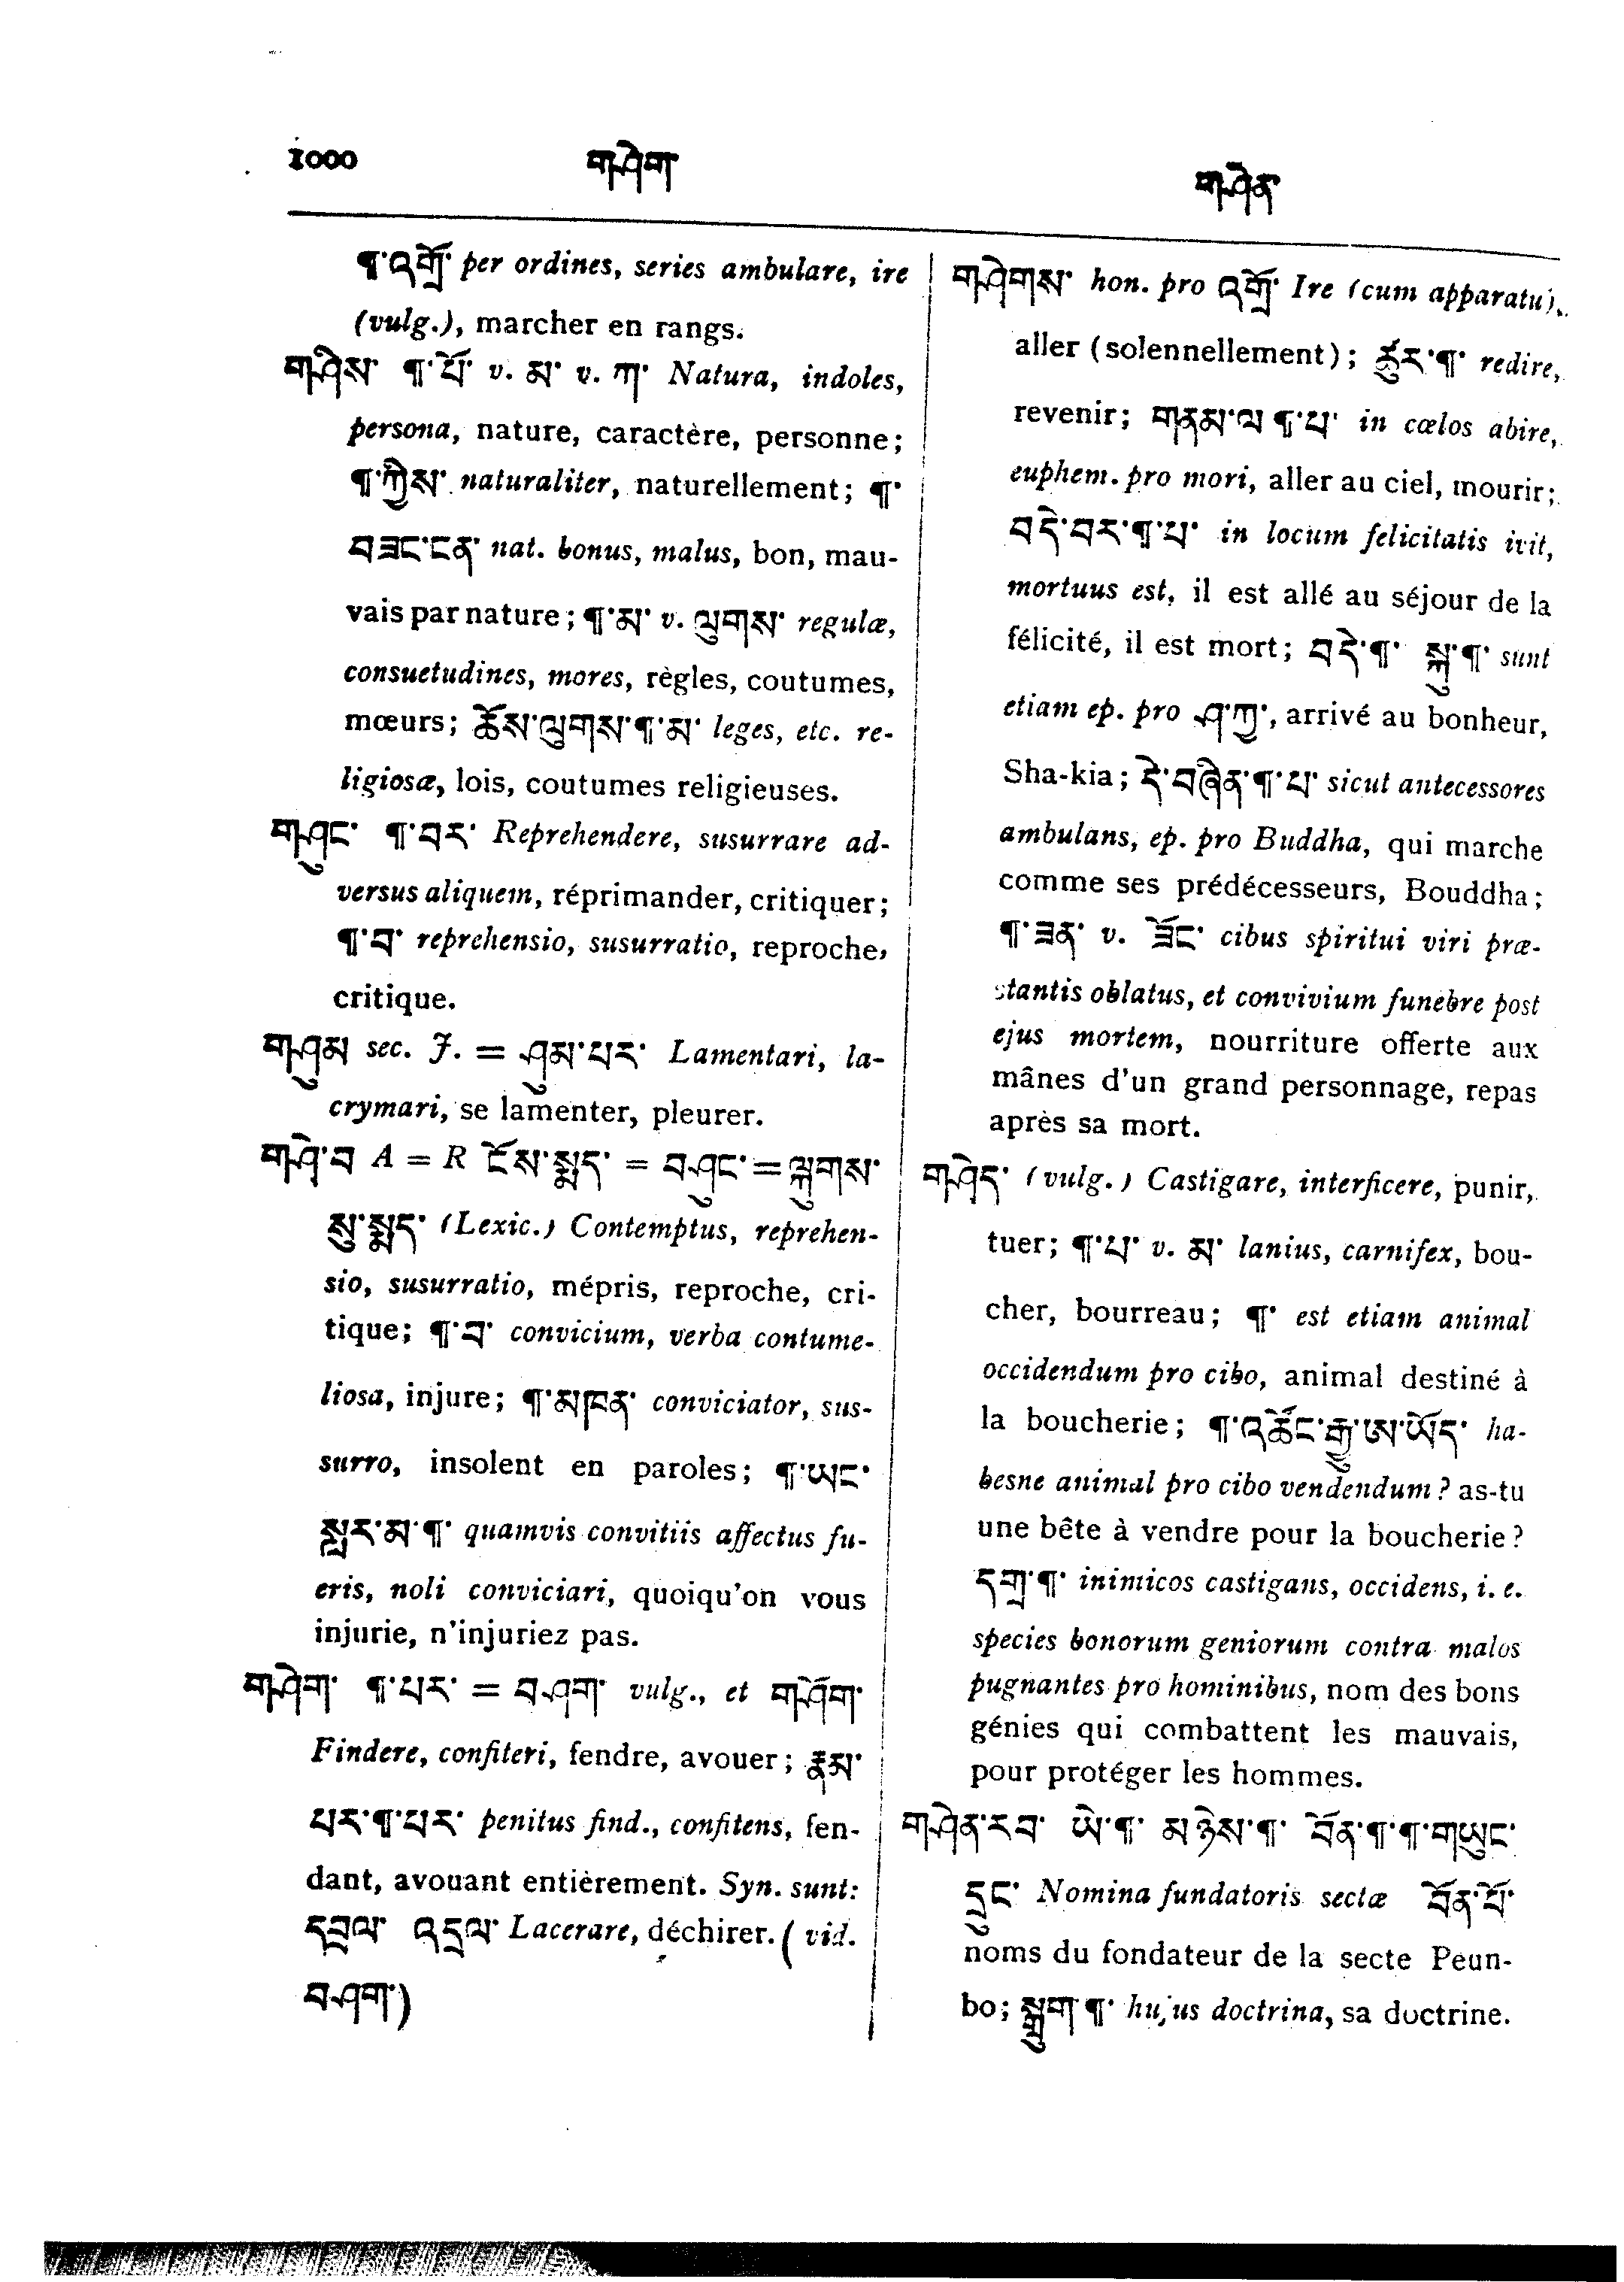 1000 གཤེག གཤེན་
¶་འགྲོ་ per ordines, series ambulare, ire
(vulg.), marcher en rangs.
གཤིས་ ¶་པོ་ v. མ་ v. ཀ་ Natura, indoles,
persona, nature, caractère, personne;
¶་ཀྱིས་ naturaliter, naturellement; ¶་
བཟང་ངན་ nat. bonus, malus, bon, mau-
vais par nature; ¶་མ་ v. ལུགས་ regulæ,
consuetudines, mores, règles, coutumes,
mœurs; ཆོས་ལུགས་¶་མ་ leges, etc. re-
ligiosæ, lois, coutumes religieuses.
གཤུང་ ¶་བར་ Reprehendere, susurrare ad-
versus aliquem, réprimander, critiquer;
¶་བ་ reprehensio, susurratio, reproche,
critique.
གཤུམ sec. J. = ཤུམ་པར་ Lamentari, la-
crymari, se lamenter, pleurer.
གཤེ་བ A = R ངོས་སྨད་ = བཤུང་ = ལྐུགས་
སུ་སྨད་ (Lexic.) Contemptus, reprehen-
sio, susurratio, mépris, reproche, cri-
tique; ¶་བ་ convicium, verba contume-
liosa, injure; ¶་མཁན་ conviciator, sus-
surro, insolent en paroles; ¶་ཡང་
སླར་མ་¶་ quamvis convitiis affectus fu-
eris, noli conviciari, quoiqu'on vous
injurie, n'injuriez pas.
གཤེག་ ¶་པར་ = བཤག་ vulg., et གཤོག་
Findere, confiteri, fendre, avouer; རྣམ་
པར་¶་པར་ penitus find., confitens, fen-
dant, avouant entièrement. Syn. sunt:
དབྲལ་ འདྲལ་ Lacerare, déchirer. (vid.
བཤག་)
གཤེགས་ hon. pro འགྲོ་ Ire (cum apparatu),
aller (solennellement); ཚུར་¶་ redire,
revenir; གནམ་ལ ¶་པ་ in cœlos abire,
euphem. pro mori, aller au ciel, mourir;
བདེ་བར་¶་པ་ in locum felicitatis ivit,
mortuus est, il est allé au séjour de la
félicité, il est mort; བདེ་¶་ སྐུ་¶་ sunt
etiam ep. pro ཤ་ཀྱ་, arrivé au bonheur,
Sha-kia; དེ་བཞིན་¶་པ་ sicut antecessores
ambulans, ep. pro Buddha, qui marche
comme ses prédécesseurs, Bouddha;
¶་ཟན་ v. ཟོང་ cibus spiritui viri præ-
stantis oblatus, et convivium funebre post
ejus mortem, nourriture offerte aux
mânes d'un grand personnage, repas
après sa mort.
གཤེད་ (vulg.) Castigare, interficere, punir,
tuer; ¶་པ་ v. མ་ lanius, carnifex, bou-
cher, bourreau; ¶་ est etiam animal
occidendum pro cibo, animal destiné à
la boucherie; ¶་འཚོང་རྒྱུ་ཨ་ཡོད་ ha-
besne animal pro cibo vendendum? as-tu
une bête à vendre pour la boucherie?
དགྲ་¶་ inimicos castigans, occidens, i. e.
species bonorum geniorum contra malos
pugnantes pro hominibus, nom des bons
génies qui combattent les mauvais,
pour protéger les hommes.
གཤེན་རབ་ ཡེ་¶་ མཉེས་¶་ བོན་¶་¶་གཡུང་
དྲུང་ Nomina fundatoris sectæ བོན་པོ་
noms du fondateur de la secte Peun-
bo; སྒྲུག་¶་ hujus doctrina, sa doctrine.